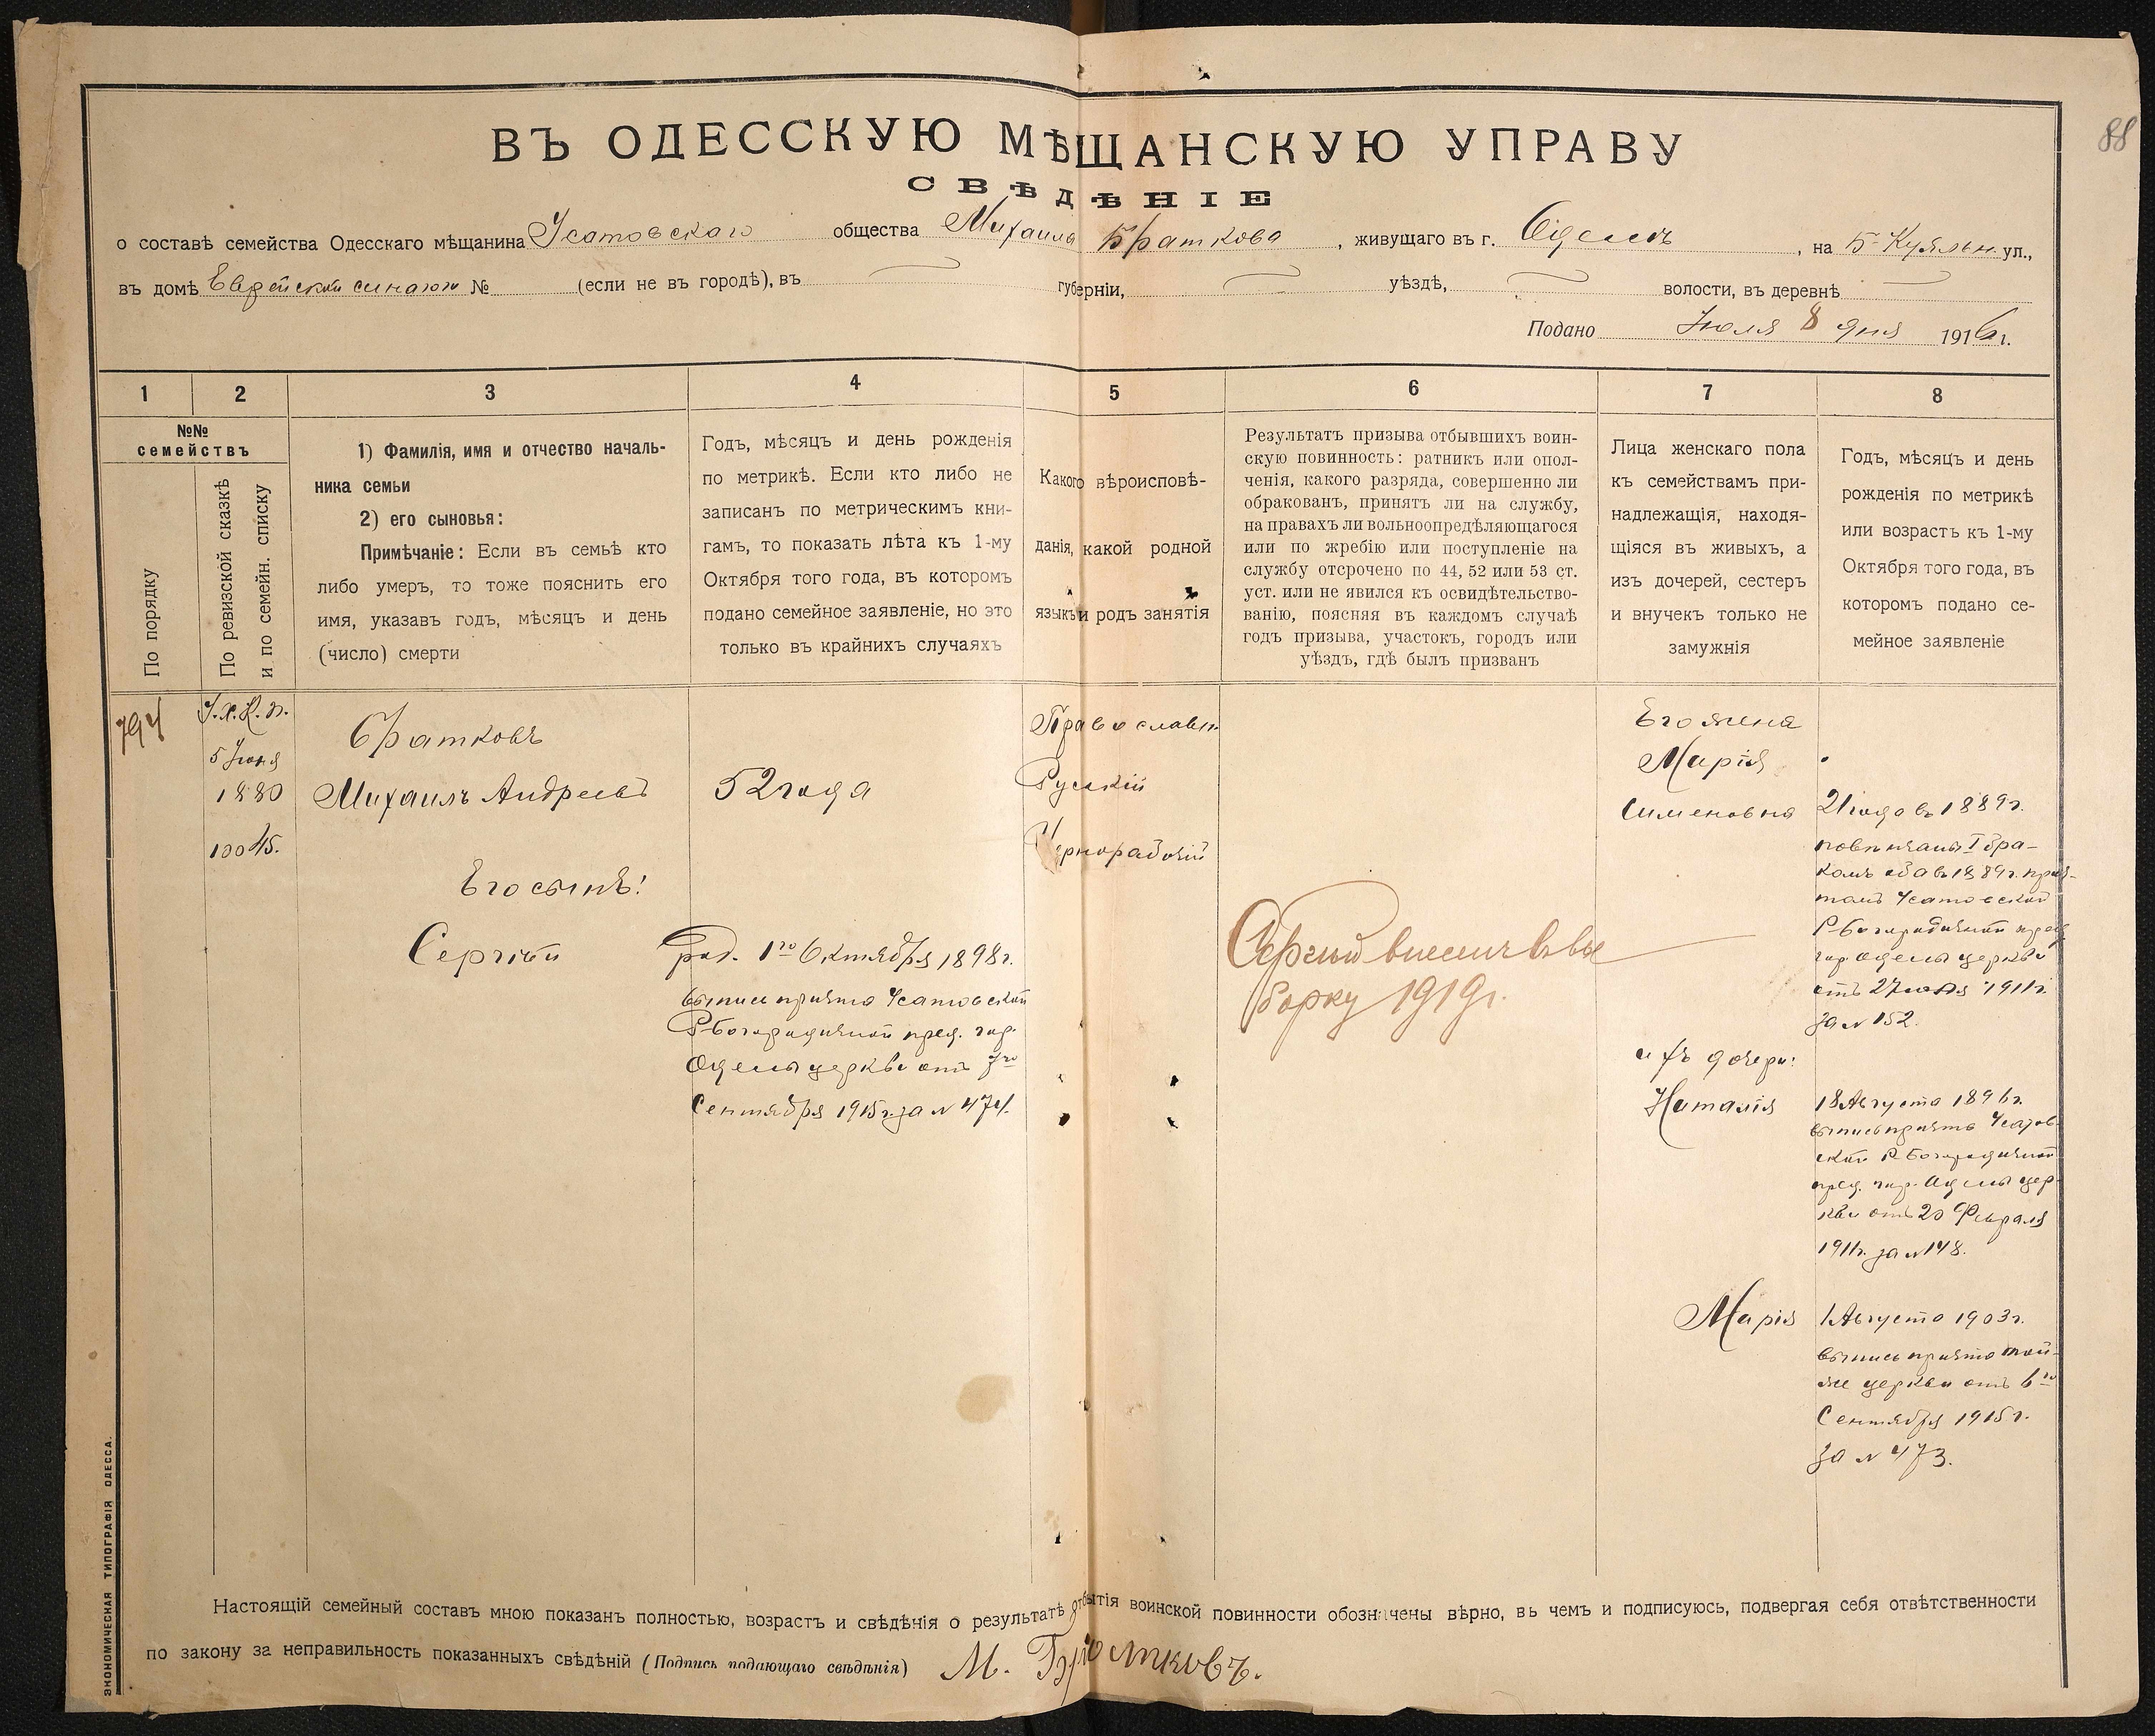 88
ВЪ ОДЕССКУЮ МѢЩАНСКУЮ УПРАВУ
СВѢДѢНІЕ
о составѣ семейства Одесскаго мѣщанина Усатовскаго общества Михаила Браткова, живущаго въ г. Одессѣ, на Б-Куяльн. ул.,
въ домѣ Еврейской синагоги № (если не въ городѣ), въ губерніи, уѣздѣ, волости, въ деревнѣ
Подано Іюля 8 дня 1916 г.
1 2 3 4 5 6 7 8
№№
семействъ
По порядку
По ревизской сказкѣ
и по семейн. списку
1) Фамилія, имя и отчество началь-
ника семьи
2) его сыновья:
Примѣчаніе: Если въ семьѣ кто
либо умеръ, то тоже пояснить его
имя, указавъ годъ, мѣсяцъ и день
(число) смерти
Годъ, мѣсяцъ и день рожденія
по метрикѣ. Если кто либо не
записанъ по метрическимъ кни-
гамъ, то показать лѣта къ 1-му
Октября того года, въ которомъ
подано семейное заявленіе, но это
только въ крайнихъ случаяхъ
Какого вѣроисповѣ-
данія, какой родной
языкъ и родъ занятія
Результатъ призыва отбывшихъ воин-
скую повинность: ратникъ или опол-
ченія, какого разряда, совершенно ли
обракованъ, принятъ ли на службу,
на правахъ ли вольноопредѣляющагося
или по жребію или поступленіе на
службу отсрочено по 44, 52 или 53 ст.
уст. или не явился къ освидѣтельство-
ванію, поясняя въ каждомъ случаѣ
годъ призыва, участокъ, городъ или
уѣздъ, гдѣ былъ призванъ
Лица женскаго пола
къ семействамъ при-
надлежащія, находя-
щіяся въ живыхъ, а
изъ дочерей, сестеръ
и внучекъ только не
замужнія
Годъ, мѣсяцъ и день
рожденія по метрикѣ
или возрастъ къ 1-му
Октября того года, въ
которомъ подано се-
мейное заявленіе
794
5 Іюня
1880
10045.
Братковъ
Михаилъ Андреевъ
Его сынъ:
Сергѣй
52 года
род. 1го Октября 1898 г.
выпись причта Усатовской
Р-Богородичной пред. гор.
Одессы церкви отъ 7го
Сентября 1915 г. за № 474.
Православн.
Русскій
Чернорабочій
Сергѣй внесенъ въ вы
борку 1919 г.
Его жена
Марія
Сименовна
21 года въ 1889 г.
повѣнчаны I бра-
комъ оба въ 1889 г. прич-
томъ Усатовской
Р-Богородичной пред
гор. Одессы церкви
1911 г.
за № 152.
ихъ дочери:
Наталія
18 Августа 1896 г.
выпись причта Усатов-
ской Р-Богородичной
пред. гор. Одессы цер-
кви отъ 20 Февраля
1911 г. за № 148.
Марія
1 Августа 1903 г.
выпись причта той-
же церкви отъ 6го
Сентября 1915 г.
за № 473.
Настоящій семейный составъ мною показанъ полностью, возрастъ и свѣдѣнія о результатѣ отбытія воинской повинности обозначены вѣрно, въ чемъ и подписуюсь, подвергая себя отвѣтственности
по закону за неправильность показанныхъ свѣдѣній (Подпись подающаго свѣдѣнія) М. Братковъ.
ЭКОНОМИЧЕСКАЯ ТИПОГРАФІЯ ОДЕССА.